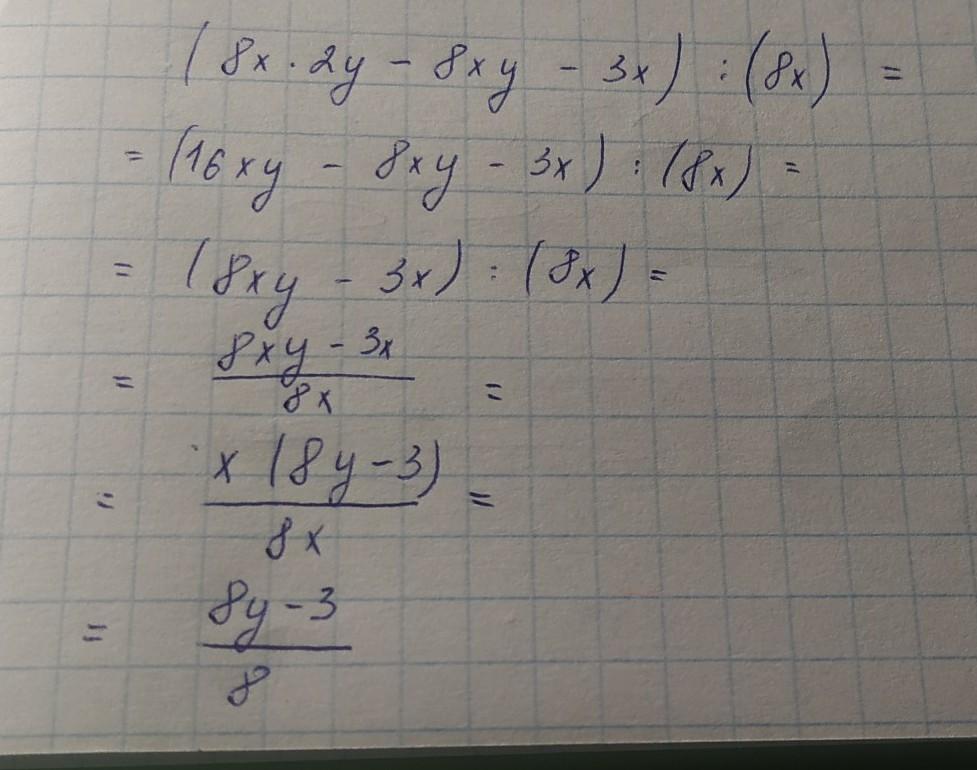 (8x · 2y - 8xy - 3x) : (8x) =
= (16xy - 8xy - 3x) : (8x) =
= (8xy - 3x) : (8x) =
= \frac{8xy - 3x}{8x} =
= \frac{x(8y - 3)}{8x} =
= \frac{8y - 3}{8}